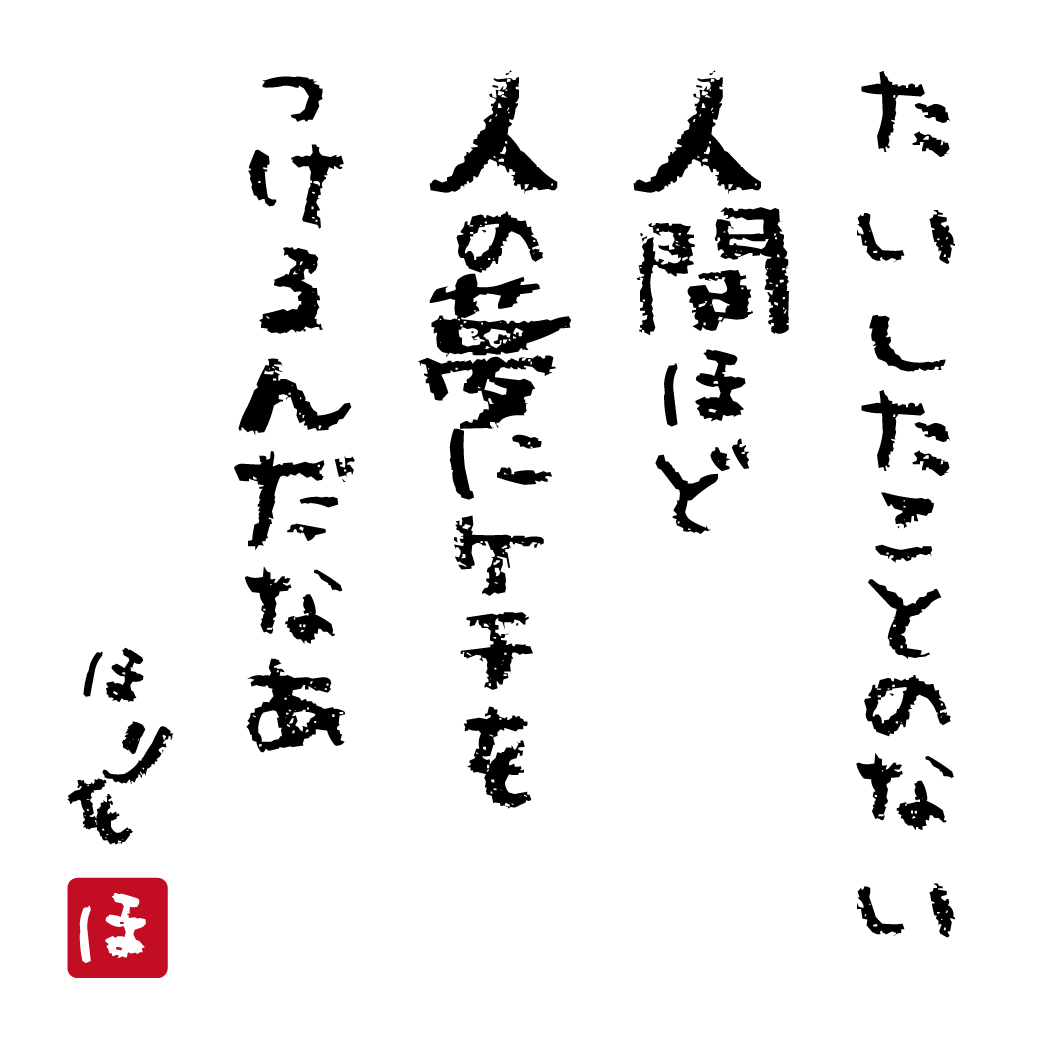 たいしたことのない
人間ほど
人の夢にケチを
つけるんだなあ
ほりを
ほ